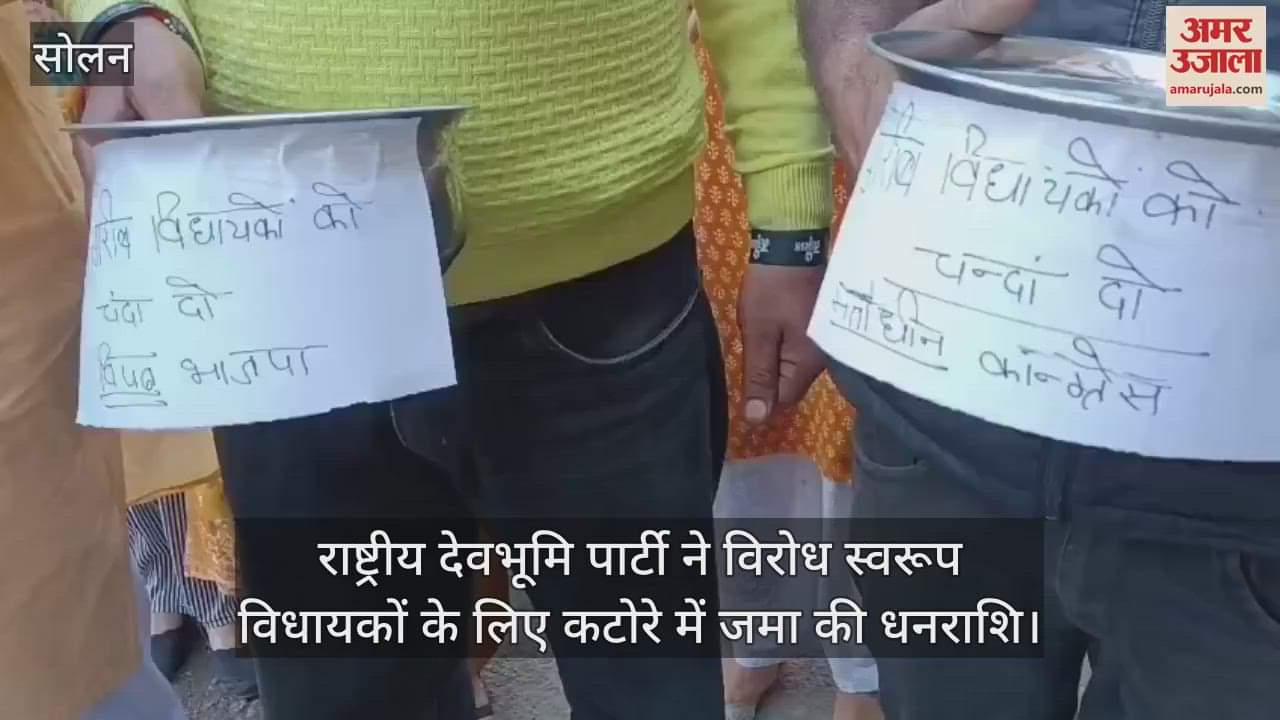 सोलन
अमर
उजाला
amarujala.com
गरीब विधायकों को
चंदा दो
विपक्ष भाजपा
गरीब विधायकों को
चन्दां दो
सत्ताधीन कॉन्ग्रेस
राष्ट्रीय देवभूमि पार्टी ने विरोध स्वरूप
विधायकों के लिए कटोरे में जमा की धनराशि।